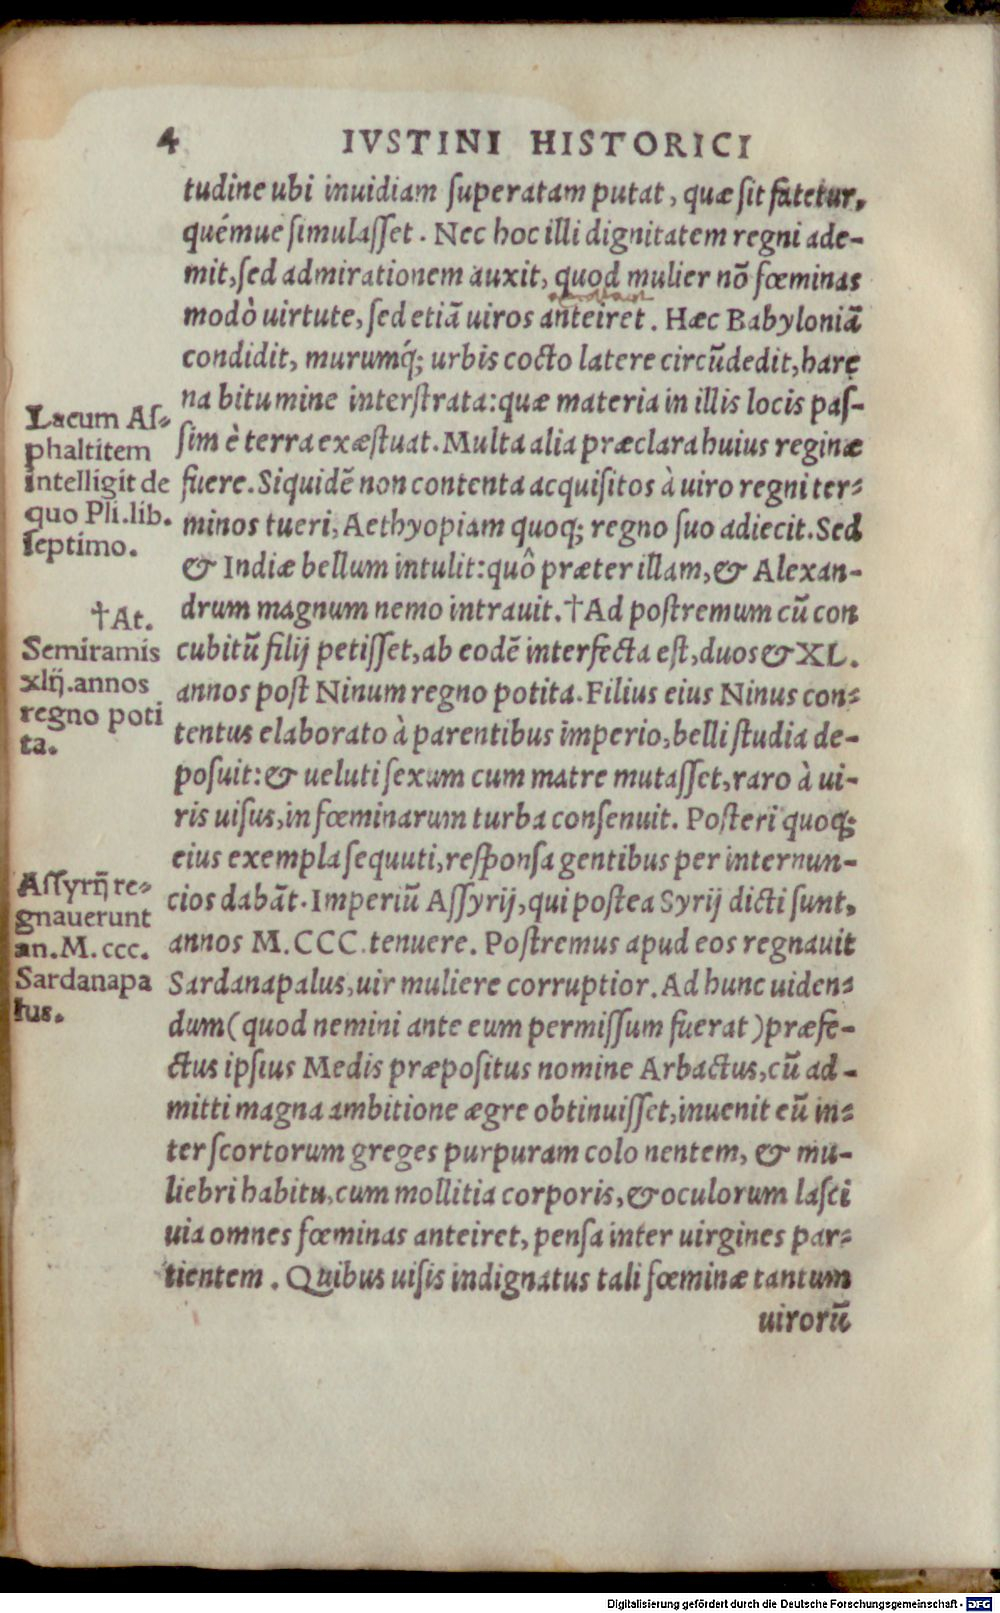 4 IVSTINI HISTORICI
tudine ubi inuidiam ſuperatam putat, quæ ſit fatetur,
quémue ſimulaſſet. Nec hoc illi dignitatem regni ade-
mit, ſed admirationem auxit, quod mulier nō fœminas
modò uirtute, ſed etiā uiros anteiret. Hæc Babyloniā
condidit, murumq́; urbis cocto latere circūdedit, hare
na bitumine interſtrata: quæ materia in illis locis paſ-
ſim è terra exæſtuat. Multa alia præclara huius reginæ
fuere. Siquidē non contenta acquiſitos à uiro regni ter-
minos tueri, Aethyopiam quoq; regno ſuo adiecit. Sed
& Indiæ bellum intulit: quô præter illam, & Alexan-
drum magnum nemo intrauit. †Ad poſtremum cū con
cubitū filij petiſſet, ab eodē interfecta eſt, duos & XL.
annos poſt Ninum regno potita. Filius eius Ninus con-
tentus elaborato à parentibus imperio, belli ſtudia de-
poſuit: & ueluti ſexum cum matre mutaſſet, raro à ui-
ris uiſus, in fœminarum turba conſenuit. Poſteri quoq;
eius exempla ſequuti, reſponſa gentibus per internun-
cios dabāt. Imperiū Aſſyrij, qui poſtea Syrij dicti ſunt,
annos M.CCC. tenuere. Poſtremus apud eos regnauit
Sardanapalus, uir muliere corruptior. Ad hunc uiden-
dum (quod nemini ante eum permiſſum fuerat) præfe-
ctus ipſius Medis præpoſitus nomine Arbactus, cū ad-
mitti magna ambitione ægre obtinuiſſet, inuenit eū in-
ter ſcortorum greges purpuram colo nentem, & mu-
liebri habitu, cum mollitia corporis, & oculorum laſci
uia omnes fœminas anteiret, penſa inter uirgines par-
tientem. Quibus uiſis indignatus tali fœminæ tantum
uirorū
Lacum Aſ-
phaltitem
intelligit de
quo Pli. lib.
ſeptimo.
†At.
Semiramis
xlij. annos
regno poti
ta.
Aſſyrij re-
gnauerunt
an. M. ccc.
Sardanapa
lus.
Digitalisierung gefördert durch die Deutsche Forschungsgemeinschaft - DFG